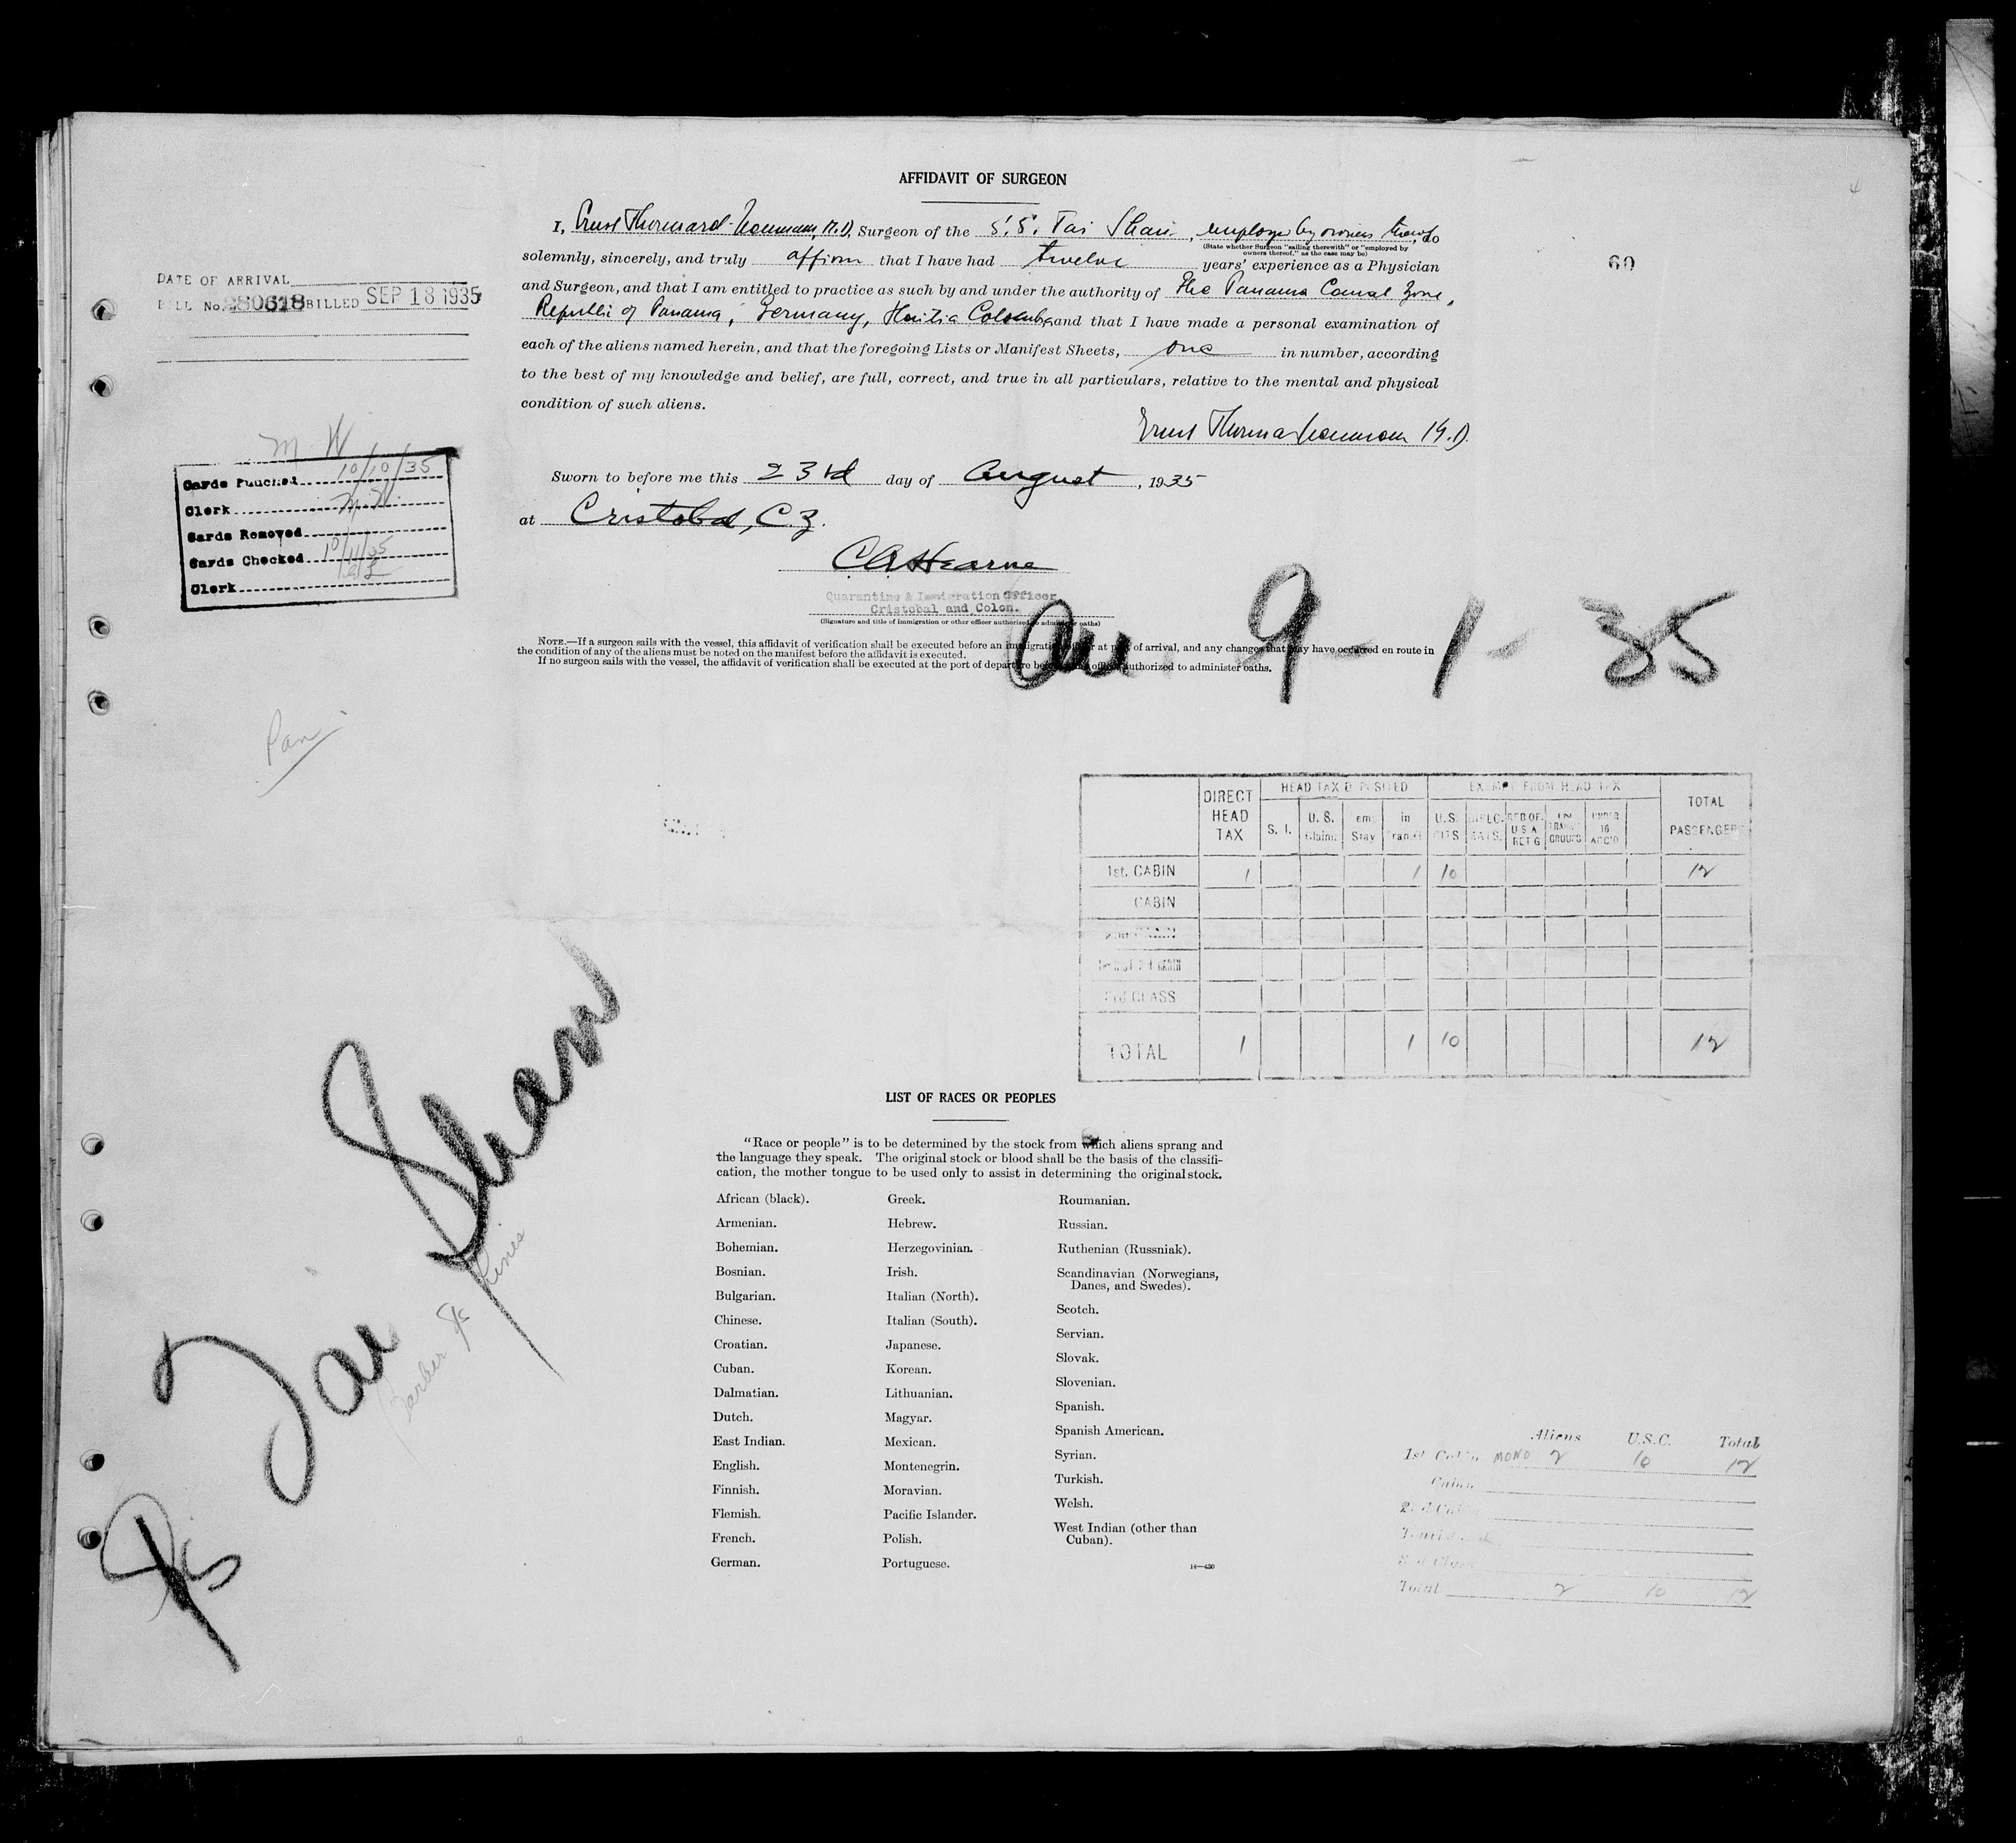 AFFIDAVIT OF SURGEON
I, Ernst Thormard- M.D., Surgeon of the S.S. Tai Shan, employe by owners thereof, do
(State whether Surgeon "sailing therewith" or "employed by
owners thereof," as the case may be)
solemnly, sincerely, and truly affirm that I have had twelve years' experience as a Physician
60
and Surgeon, and that I am entitled to practice as such by and under the authority of The Panama Canal Zone,
Republic of Panama, Germany, and that I have made a personal examination of
each of the aliens named herein, and that the foregoing Lists or Manifest Sheets, one in number, according
to the best of my knowledge and belief, are full, correct, and true in all particulars, relative to the mental and physical
condition of such aliens.
M.D.
Sworn to before me this 23rd day of August, 1935
at Cristobal, C.Z.
C.A. Hearne
Quarantine & Immigration Officer
Cristobal and Colon.
(Signature and title of immigration or other officer authorized to administer oaths)
NOTE.—If a surgeon sails with the vessel, this affidavit of verification shall be executed before an immigration officer at port of arrival, and any changes that may have occurred en route in
the condition of any of the aliens must be noted on the manifest before the affidavit is executed.
If no surgeon sails with the vessel, the affidavit of verification shall be executed at the port of departure before an officer authorized to administer oaths.
9-1-35
DATE OF ARRIVAL
BILL No. 280618 BILLED SEP 18 1935
M W
Cards Punched 10/10/35
Clerk M.W.
Cards Removed
Cards Checked 10/11/35
Clerk
Pan
DIRECT HEAD TAX
HEAD TAX DEPOSITED
EXEMPT FROM HEAD TAX
TOTAL PASSENGERS
S. I.
U. S. Claim
Tem. Stay
in Transit
U.S. CITS
DIPLO-MATS.
RES OF U S A RET'G
IN TRANS. GROUPS
UNDER 16 ACC'D
1st. CABIN 1 1 10 12
CABIN
2nd CABIN
3rd CLASS
TOTAL 1 1 10 12
S/S Tai Shan
Barber S/S Lines
LIST OF RACES OR PEOPLES
"Race or people" is to be determined by the stock from which aliens sprang and
the language they speak. The original stock or blood shall be the basis of the classifi-
cation, the mother tongue to be used only to assist in determining the original stock.
African (black).
Armenian.
Bohemian.
Bosnian.
Bulgarian.
Chinese.
Croatian.
Cuban.
Dalmatian.
Dutch.
East Indian.
English.
Finnish.
Flemish.
French.
German.
Greek.
Hebrew.
Herzegovinian.
Irish.
Italian (North).
Italian (South).
Japanese.
Korean.
Lithuanian.
Magyar.
Mexican.
Montenegrin.
Moravian.
Pacific Islander.
Polish.
Portuguese.
Roumanian.
Russian.
Ruthenian (Russniak).
Scandinavian (Norwegians,
Danes, and Swedes).
Scotch.
Servian.
Slovak.
Slovenian.
Spanish.
Spanish American.
Syrian.
Turkish.
Welsh.
West Indian (other than
Cuban).
14—430
Aliens U.S.C. Total
1st Cabin MONO 2 10 12
Cabin
2nd Cabin
Tourist
3rd Class
Total 2 10 12